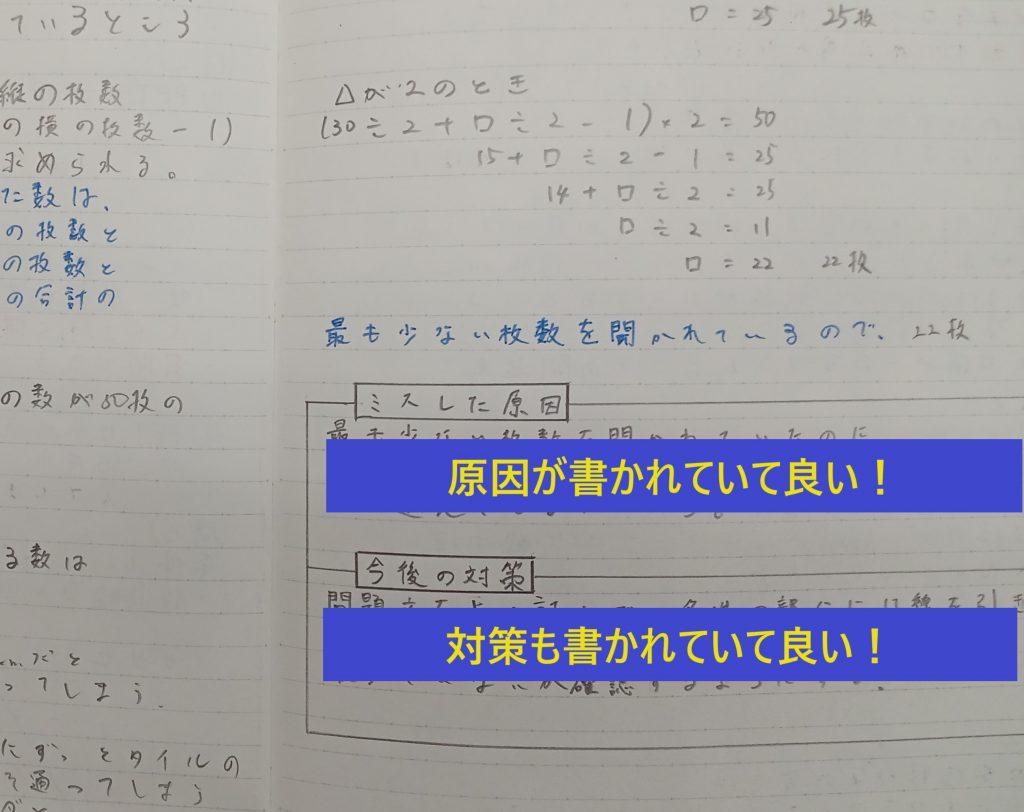 ているところ
縦の枚数
の横の枚数－1)
求められる。
た数は、
の枚数と
の枚数と
の合計の
の数が50枚の
る数は
ってしまう.
にずっとタイルの
そ通ってしまう
□ = 25 25枚
△が2のとき
(30÷2+□÷2-1)×2=50
15+□÷2-1=25
14+□÷2=25
□÷2=11
□=22 22枚
最も少ない枚数を聞かれているので、22枚
ミスした原因
最も少ない枚数を聞かれていたのに
原因が書かれていて良い！
今後の対策
対策も書かれていて良い！